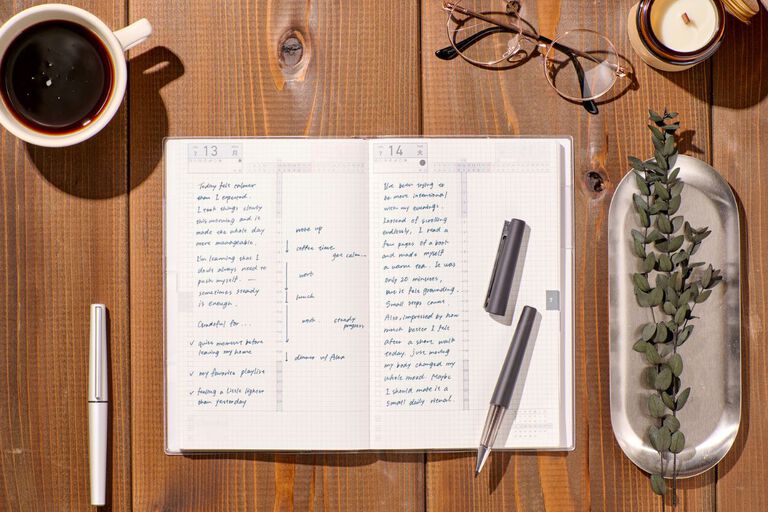 13 月
Today felt calmer
than I expected.
I took things slowly
this morning and it
made the whole day
more manageable.
I'm learning that I
don't always need to
push myself. —
sometimes steady
is enough.
Grateful for...
✓ quiet moment before
leaving my home
✓ my favorite playlist
✓ feeling a little lighter
than yesterday
woke up
coffee time
gee calm...
work
lunch
work steady
progress
dinner w/ Alea
14 火
I've been trying to
be more intentional
with my evenings.
Instead of scrolling
endlessly, I read a
few pages of a book
and made myself
a warm tea. It was
only 20 minutes,
but it felt grounding.
Small steps count.
Also, impressed by how
much better I felt
after a short walk
today. Just moving
my body changed my
whole mood. Maybe
I should make it a
small daily ritual.
7